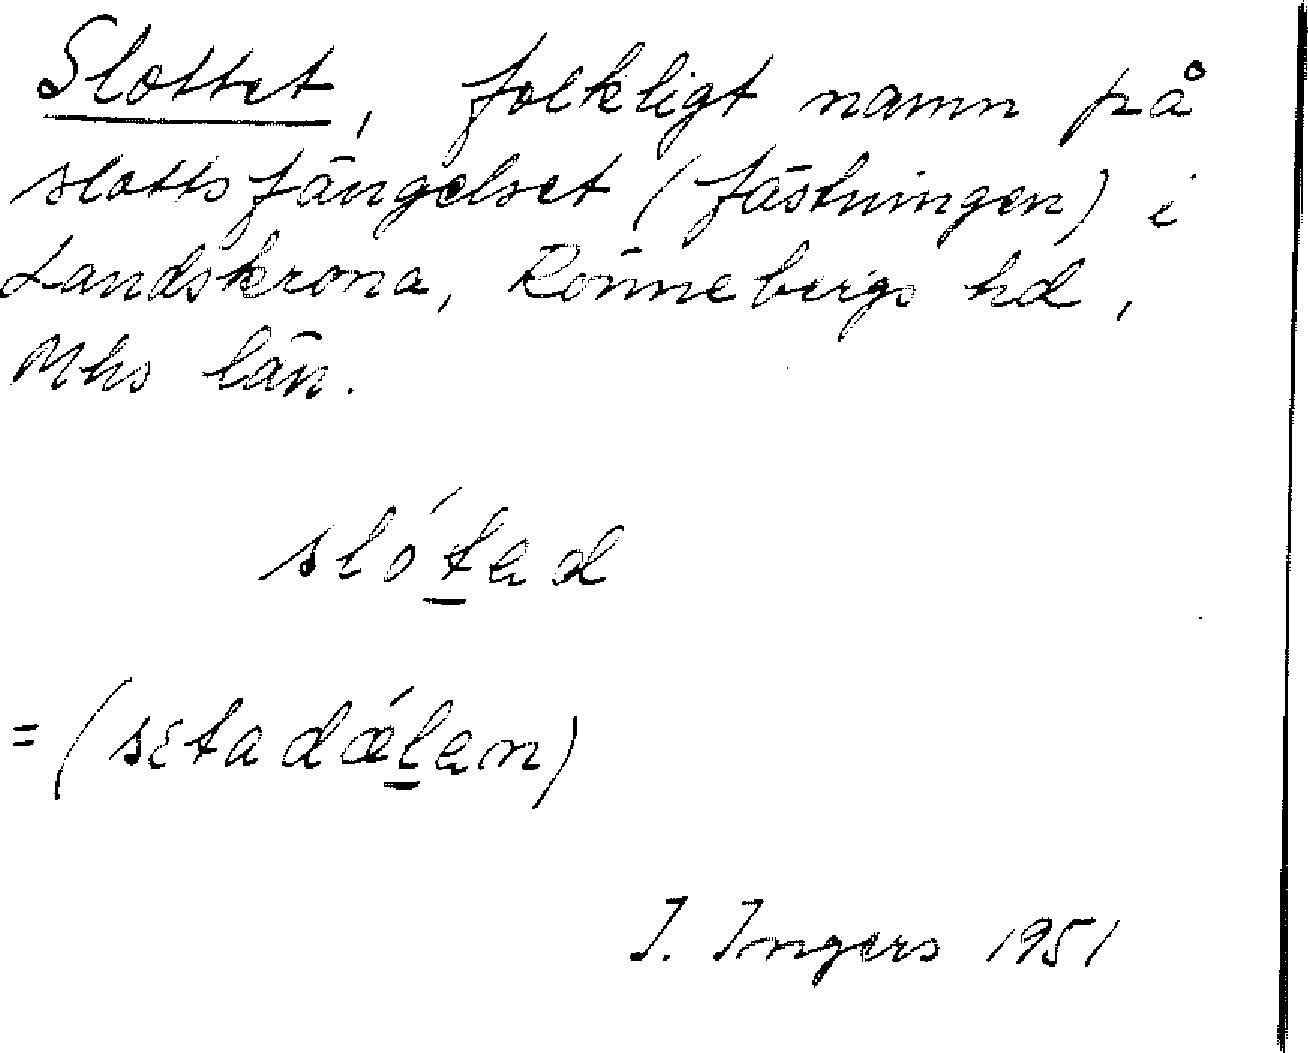 Slottet, folkligt namn på
slottsfängelset (fästningen) i
Landskrona, Rönnebergs hd,
Mhs län.
slótad
= (setadǽlan)
I. Ingers 1951